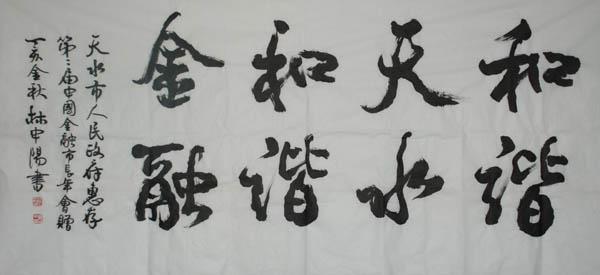 和谐
天水
和谐
金融
天水市人民政府惠存
第二届中国金融市长年会赠
丁亥金秋林中阳書